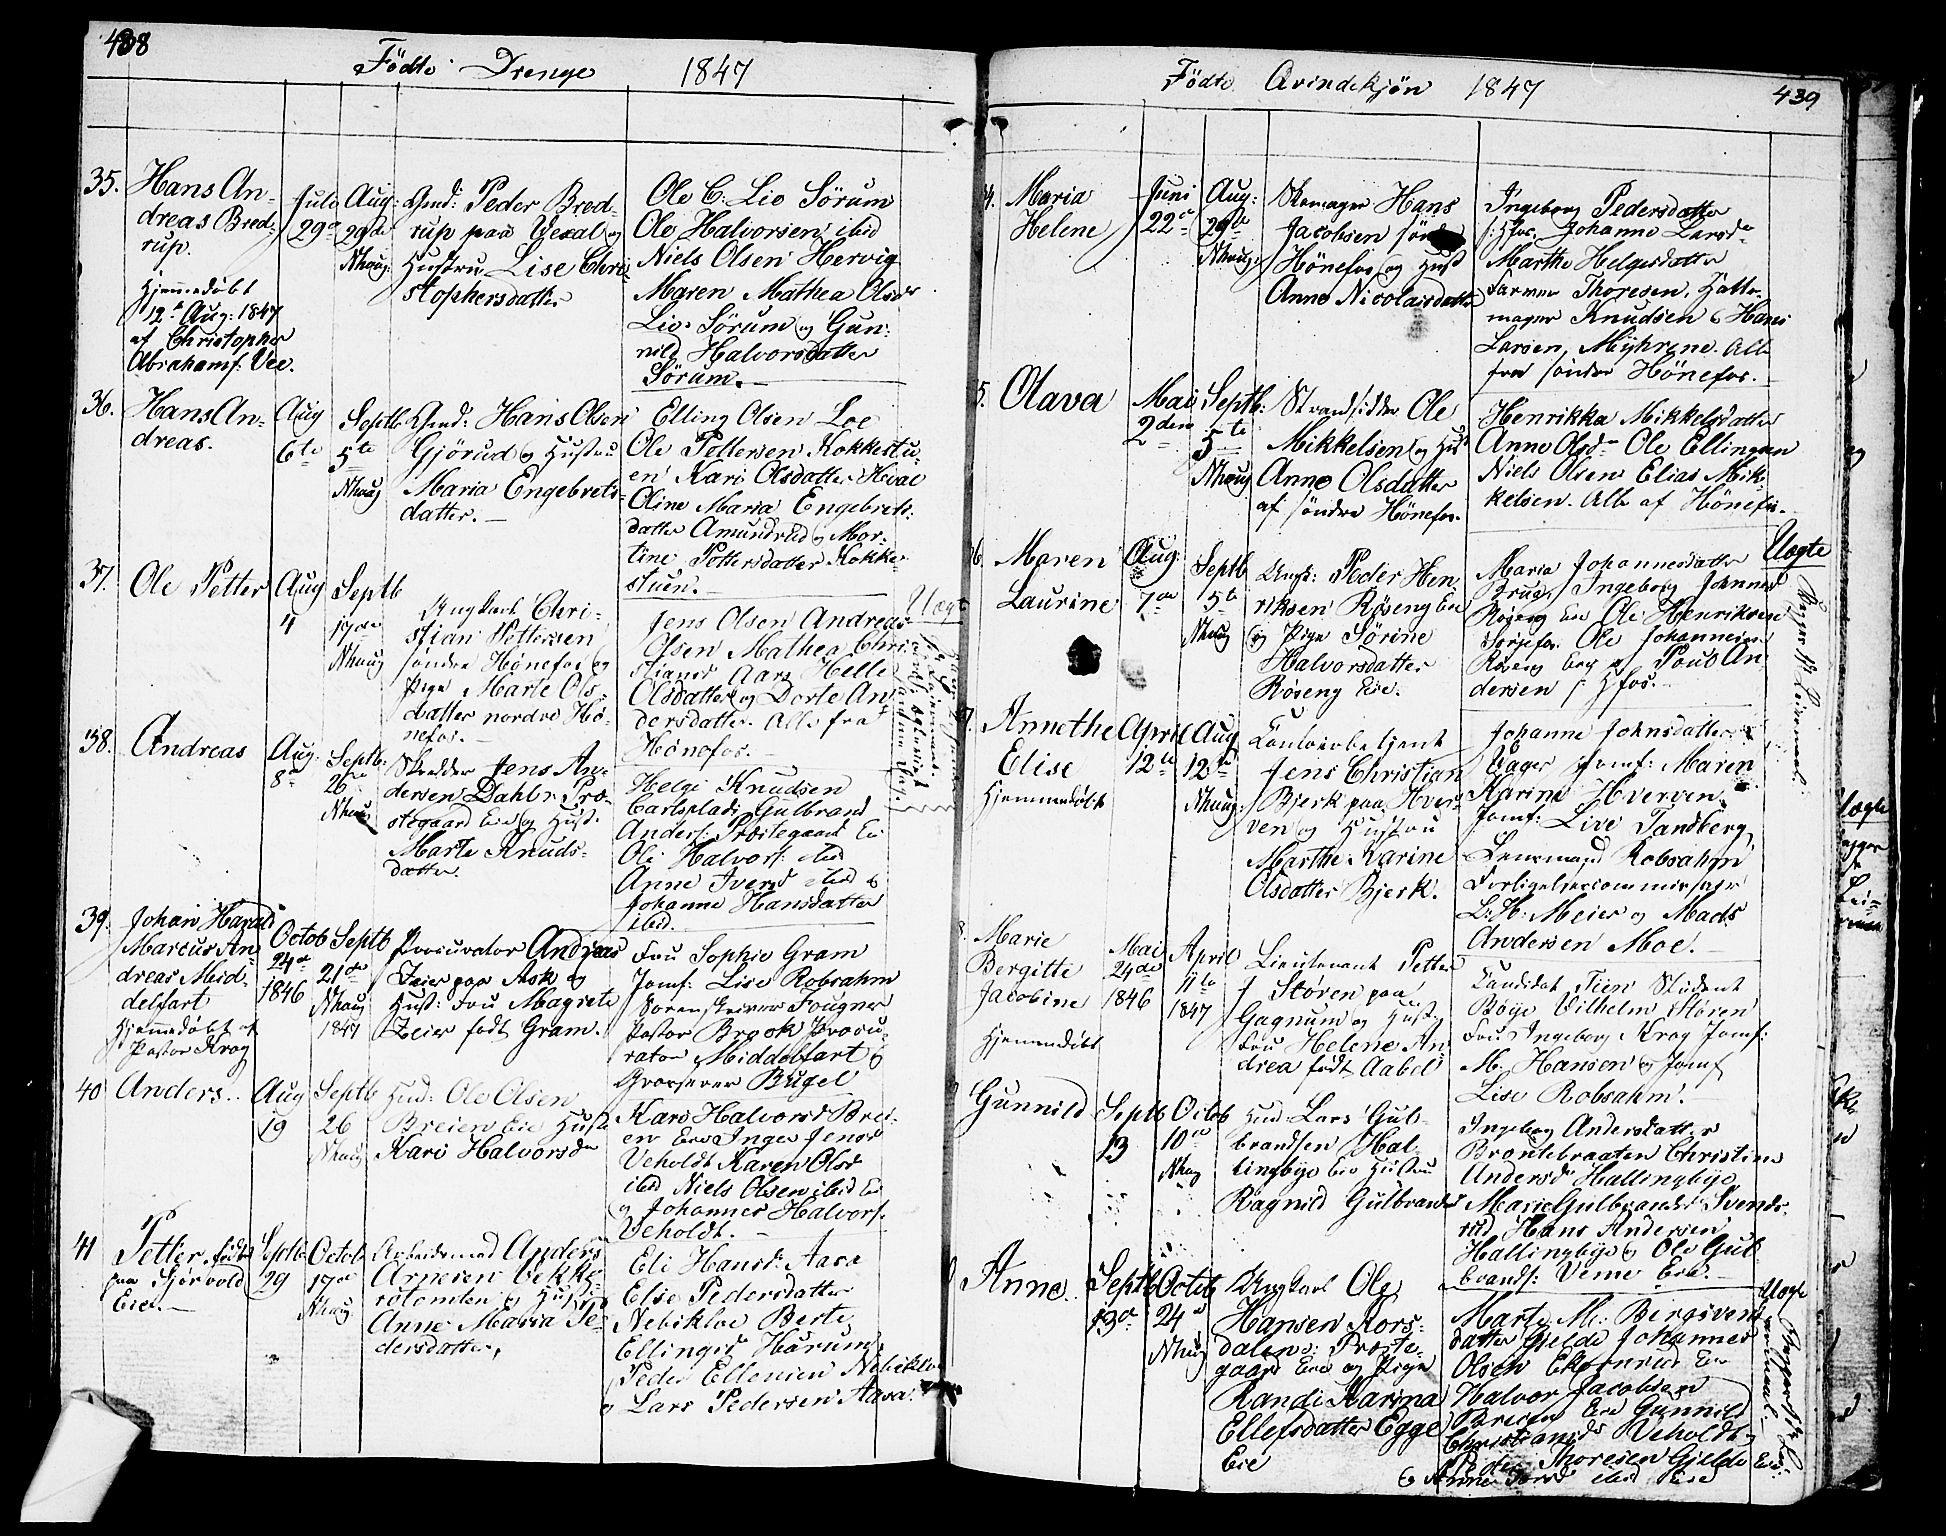 438
Födte Drenge 1847
35. Hans An-
dreas Bred-
rup.
Hjemmedøbt
12te Aug: 1847
af Christopher
Abrahams: Vee.
July
29de
Aug:
29de
Nhaug
Gmd: Peder Bred-
rup paa Vexal og
Hustru Lise Chri
stophersdatter
Ole C: Lio Sørum
Ole Halvorsen ibid
Niels Olsen Hervig
Maren Mathea Olsdr
Lio Sørum og Gun-
nild Halvorsdatter
Sørum.
36. Hans An-
dreas.
Aug
6te
Septb
5te
Nhaug
Gmd: Hans Olsen
Gjörud og Hustru
Maria Engebrets-
datter.
Elling Olsen Loe
Ole Pettersen Kokkestu-
en Kari Olsdatter Hval
Oline Maria Engebrets-
datter Amundrud og Mor-
tine Pettersdatter Kokke-
stuen.
37. Ole Petter
Aug
4
Septb
17de
Nhaug
Ungkarl Chri-
stian Pettersen
söndre Hönefos og
Pige Marte Ols-
datter nordre Hö-
nefos.
Jens Olsen Andreas
Olsen Mathea Chri-
stiansd Aars Helle
Olsdatter og Dorte An-
dersdatter. Alle fra
Hönefos.
Uægte
38. Andreas
Aug.
8de
Septb:
26de
Nhaug
Skredder Jens An-
dersen Dahler Præ-
stegaard Eie og Hust:
Marte Knuds-
datter.
Helge Knudsen
Carlsplads Gulbrand
Anders: Præstegaard Ei
Ole Halvors: ibid
Anne Iversd ibid og
Johanne Hansdatter
ibid.
39. Johan Harald
Marcus An-
dreas Mid-
delfart
Hjemmedøbt af
Pastor Krog
Octob
24de
1846
Septb
21de
Nhaug
1847
Procurator Andreas
Zeier paa Ask og
Hust: Fru Magrete
Zeier født Gram.
Fru Sophie Gram
Jomf: Lise Robsahm
Sorenskriver Fougner
Pastor Brook Procu-
rator Middelfart og
Grosserer Bügel
40 Anders.
Aug
19
Septb
26
Nhaug
Hmd: Ole Olsen
Breien Eie Hust
Kari Halvorsdr
Kari Halvorsd Brei-
en Eie Inger Jensd
Veholdt Karen Olsd
ibid Niels Olsen ibid Ei
og Johannes Halvors:
Veholdt.
41 Petter. født
paa Hjørvold
Eie.
Septb
29
Octob
17de
Nhaug
Arbeidsmd Anders
Arnesen Vekke-
rotomten og Hustru
Anne Maria Pe-
dersdatter,
Eli Hansd: Aasa
Elie Pedersdatter
Nebikloe Berte
Ellingsd Harum
Peder Ellensen Nebiklo
og Lars Pedersen Aasa.
Födte Qvindekjön 1847
439
4. Maria
Helene
Juni
22de
Aug:
29de
Nhaug
Skomager Hans
Jacobsen sönd
Hönefos og Hust
Anne Nicolaisdatter
Ingeborg Pedersdatter
s: Hfos. Johanne Larsdr
Marthe Helgesdatter
Farmer Thoresen, Hatte-
mager Knudsen & Hans
Larsen, Myhrene. Alle
fra söndre Hönefos.
5. Olava
Mai
2den
Septb:
5te
Nhaug
Strandsidder Ole
Mikkelsen og Hust
Anne Olsdatter
af söndre Hönefos.
Henrikka Mikkelsdatter
Anne Olsdr Ole Ellingsen
Niels Olsen Elias Mik-
kelsen. Alle af Hönefos.
6. Maren
Laurine
Aug:
7de
Septb
5te
Nhaug
Ungk: Peder Hen
riksen Røseng Eie
og Pige Sörine
Halvorsdatter
Røseng Eie.
Maria Johannesdatter
Brug, Ingeborg Johannesd
Röseng Eie Ole Henriksen
Ole Johannesen
Röseng Eie og Poul An
dersen s: Hfos.
Uægte
7. Annethe
Elise
Hjemmedöbt
April
12te
Aug
12te
Nhaug:
Jens Christian
Bjerk paa Hver-
ven og Hustru
Marthe Karine
Olsdatter Bjerk.
Johanne Johnsdatter
Vager Jomf: Maren
Karine Hverven.
Jomf: Live Tandberg,
Lensmand Robsahm
Forligelsescommissair
L: H: Meier og Mads
Andersen Moe.
8. Marie
Bergitte
Jacobine
Hjemmedöbt
Mai
24de
1846
April
11te
1847
Lieutenant Petter
Stören paa
Gagnum og Hust
Fru Helene An
drea født Aabel
Candidat Tien Student
Böye Vilhelm Stören
Fru Ingeborg Krog Jomf:
M: Hansen og Jomf
Lise Robsahm.
Gunnild
Septb
13
Octob
10de
Nhaug
Hmd Lars Gul-
brandsen Hal-
lingbye Eie Hustru
Ragnild Gulbrandsd
Ingeborg Andersdatter
Brontebraaten Christine
Andersdr Hallingbye
Marie Gulbrandsd Svends-
rud Hans Andersen
Hallingbye og Ole Gul-
brands: Veme Eie.
Anne.
Septb
13de
Octob
24de
Nhaug
Ungkarl Ole
Hansen Kors-
dalen Præste-
gaard Eie og Pige
Randi Karina
Ellefsdatter Egge
Eie
Marte M: Bergsvend-
datter Gjelde Johannes
Olsen Ekornrud Eie
Halvor Jacobsen
Breien Eie Gunnild
Christiansdr Veholdt
Peder Thoresen Gjelde Eie
& Anne ibid Eie
Uægte